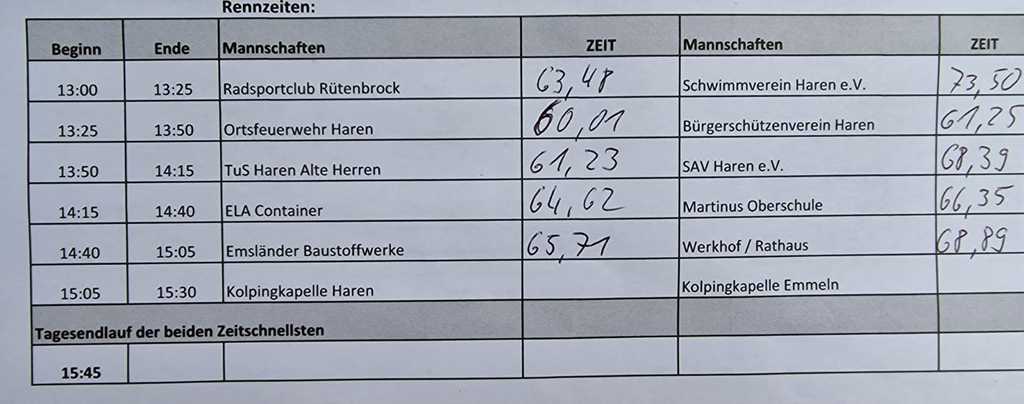 Rennzeiten:
Beginn Ende Mannschaften ZEIT Mannschaften ZEIT
13:00 13:25 Radsportclub Rütenbrock 63,48 Schwimmverein Haren e.V. 73,50
13:25 13:50 Ortsfeuerwehr Haren 60,01 Bürgerschützenverein Haren 61,25
13:50 14:15 TuS Haren Alte Herren 61,23 SAV Haren e.V. 68,39
14:15 14:40 ELA Container 64,62 Martinus Oberschule 66,35
14:40 15:05 Emsländer Baustoffwerke 65,71 Werkhof / Rathaus 68,89
15:05 15:30 Kolpingkapelle Haren Kolpingkapelle Emmeln
Tagesendlauf der beiden Zeitschnellsten
15:45